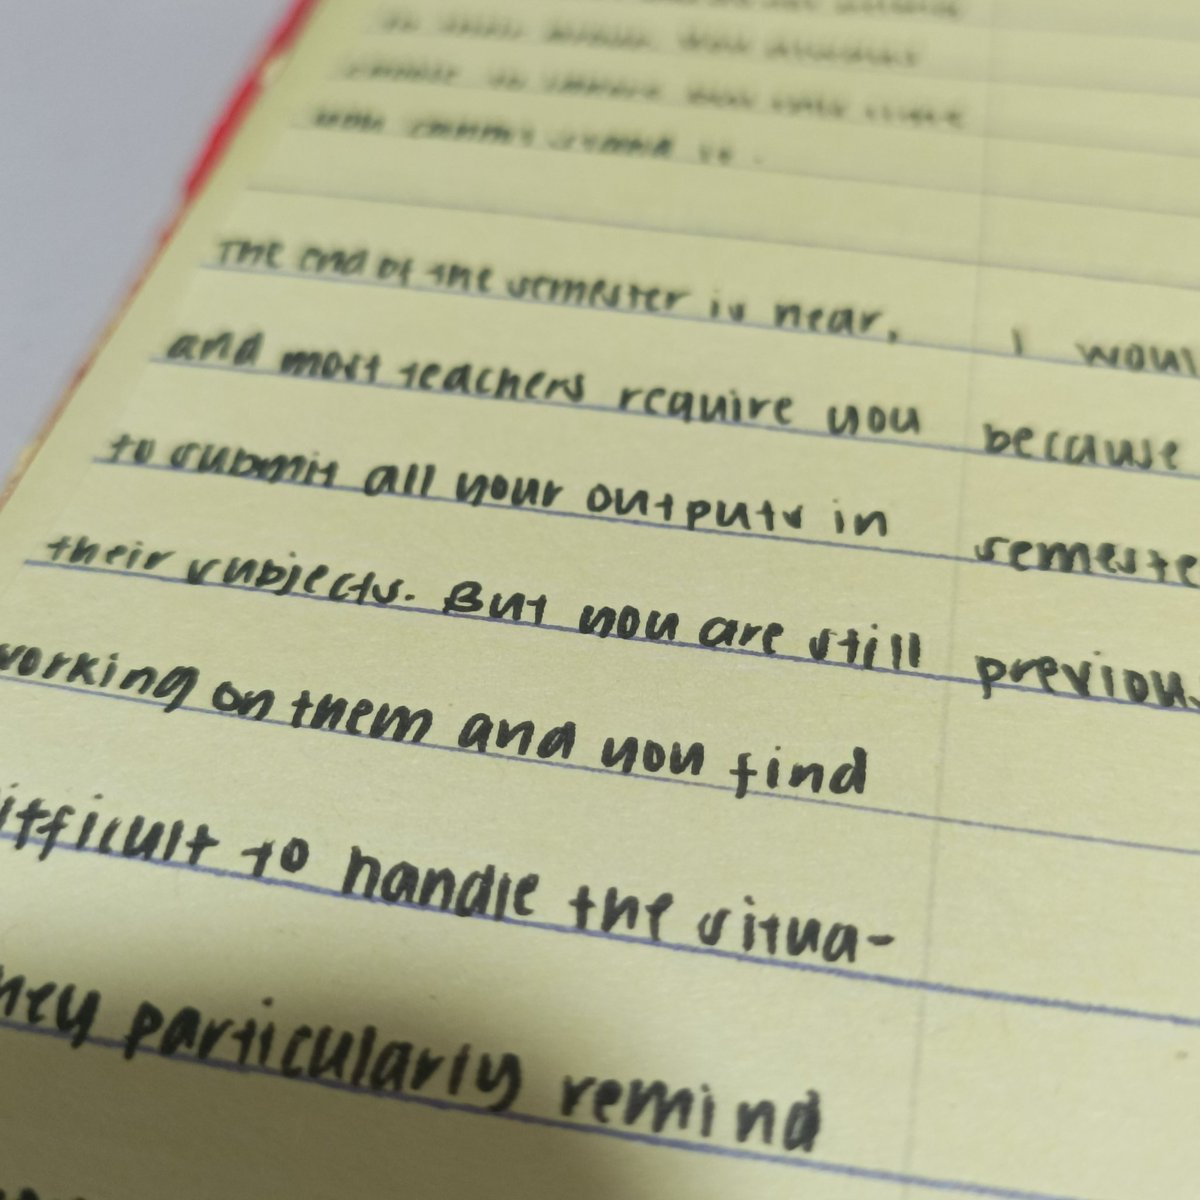 you cannot stand it.
The end of the semester is near,
and most teachers require you
to submit all your outputs in
their subjects. But you are still
working on them and you find
ifficult to handle the situa-
hey particularly remind
I woul
because
semeste
previou